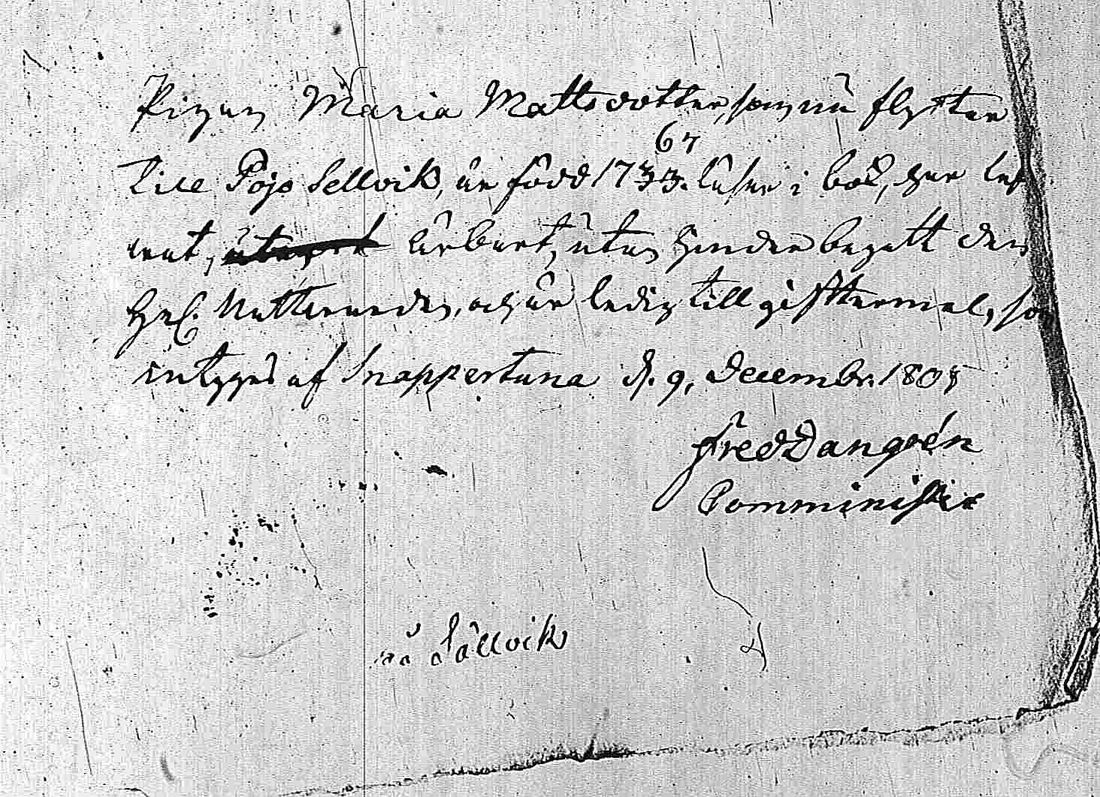 Pigan Maria Mattsdotter, som nu flytter
67
till Pojo Sellvik, är född 1733. läser i bok, har lef
wat, ärbart, utan hinder begått den
Hel. Nattwarden, och är ledig till giftermal, so
intygas af Snappertuna d. 9, Decembr. 1805
Fred Dangrén
Comminister
på Sällvik